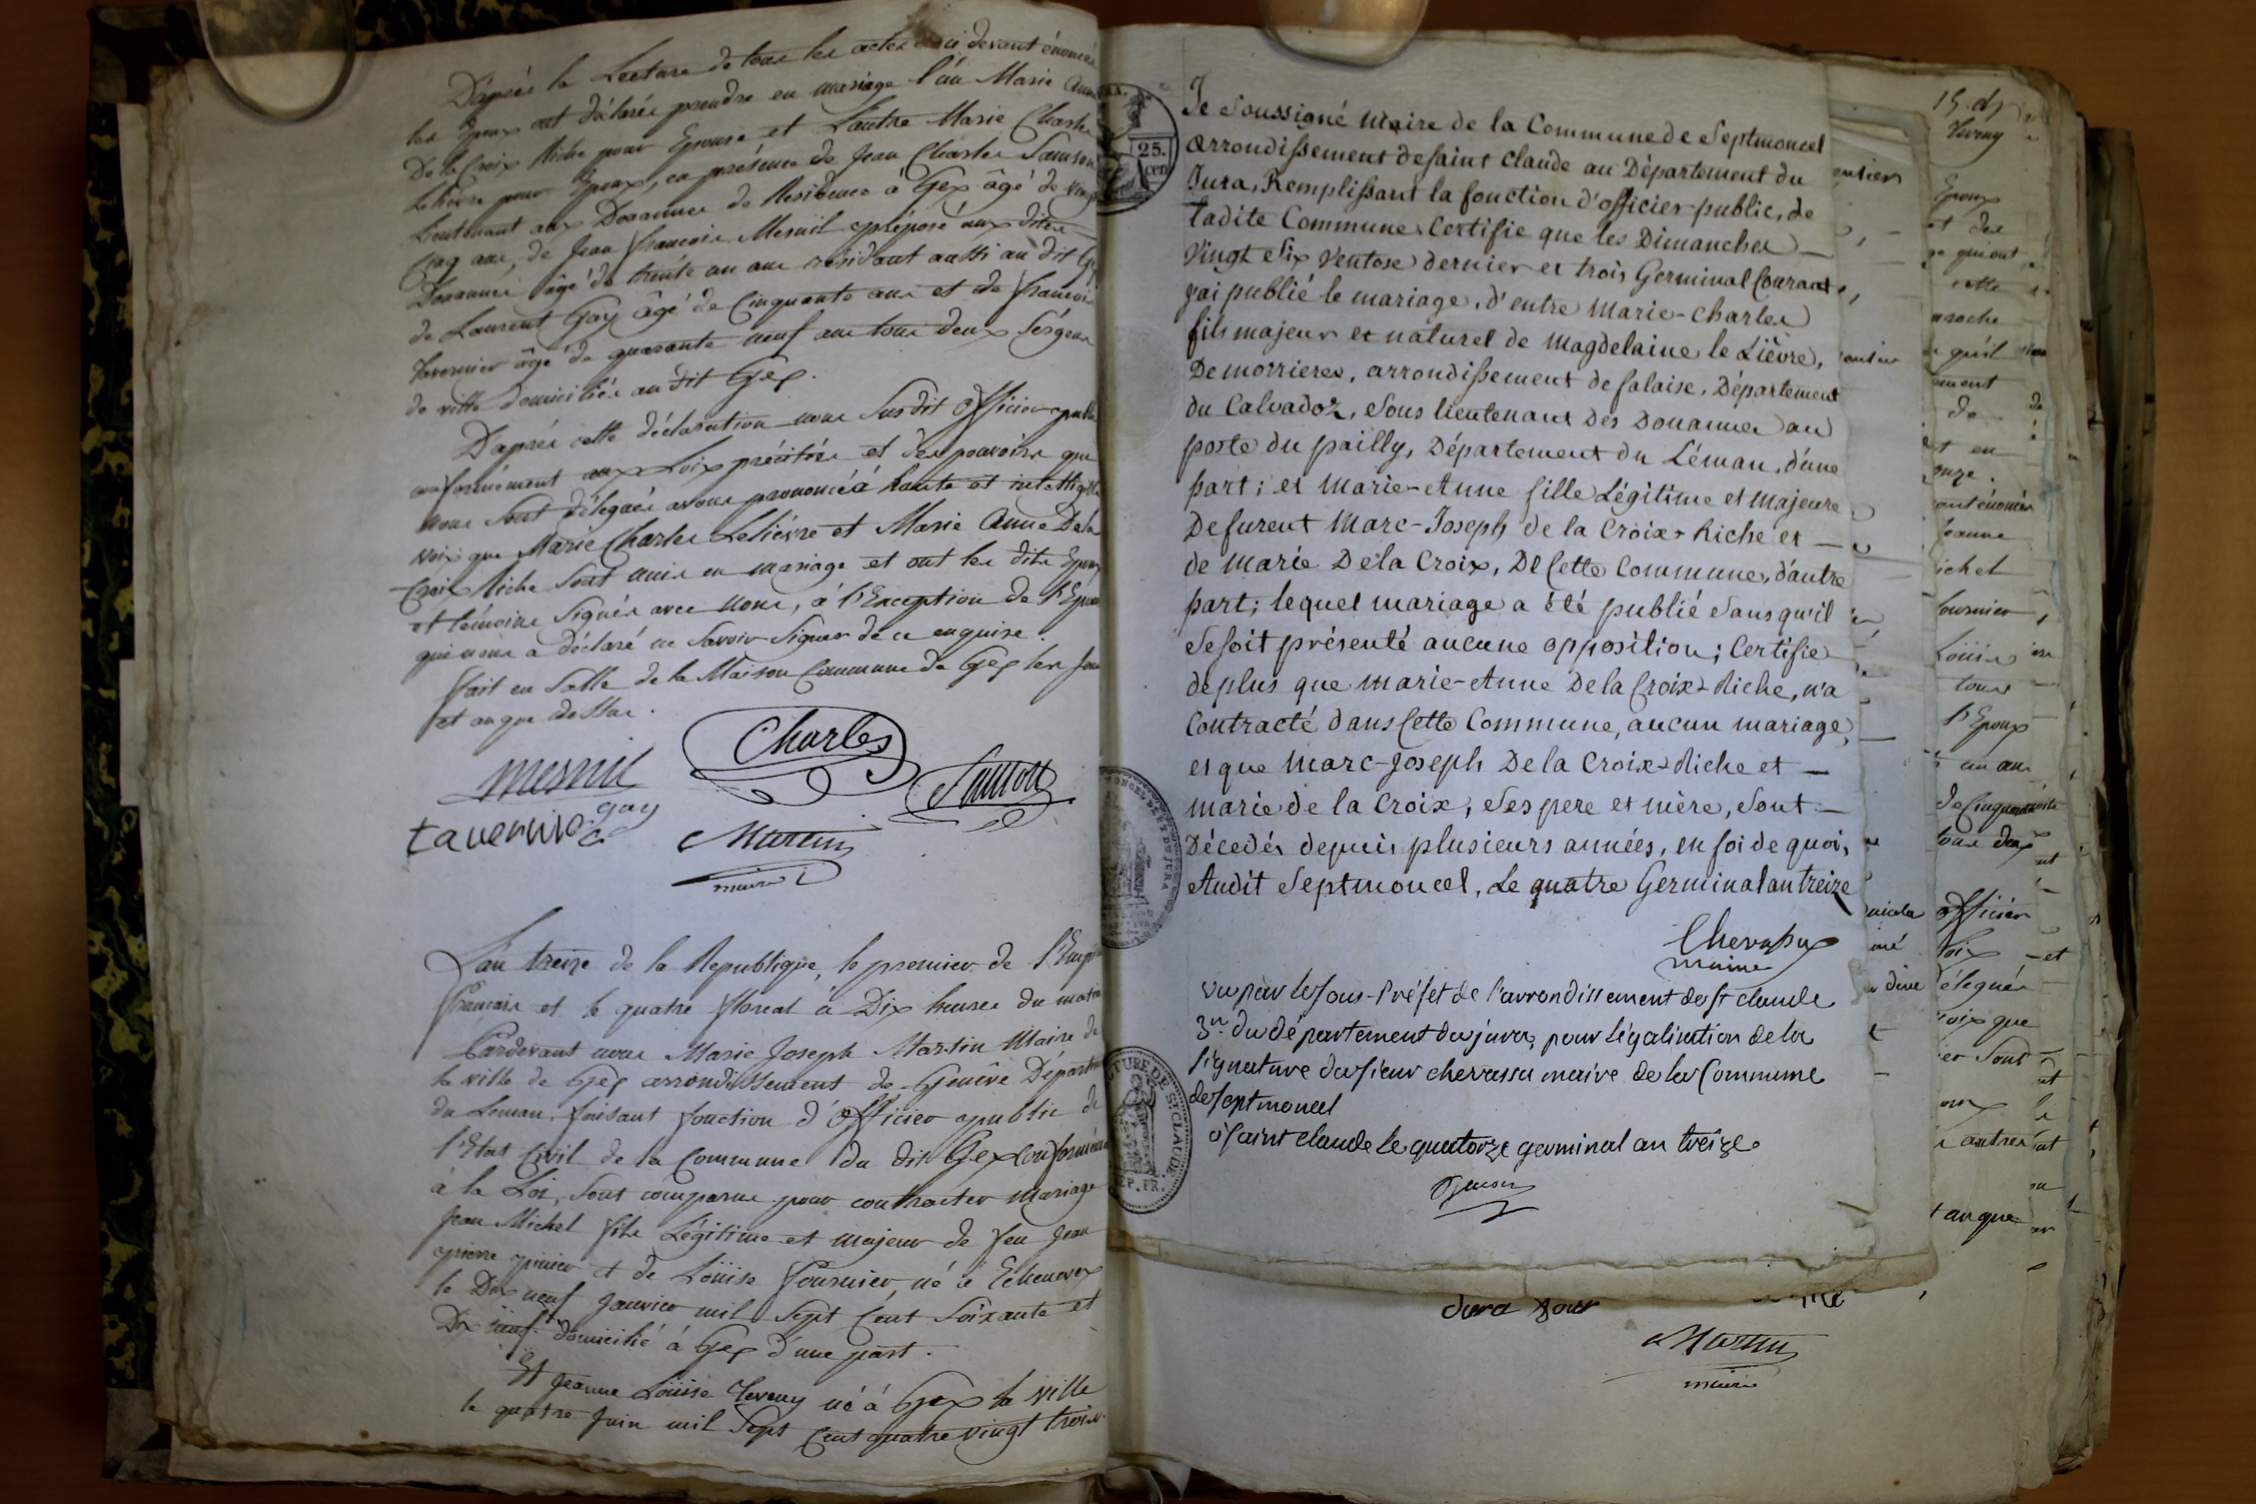 D'après la Lecture de tous les actes ci devant énoncés
les Epoux ont déclarés prendre en mariage l'un Marie Anne
De la Croix Riche pour Epouse et L'autre Marie Charles
Lelièvre pour Epoux, en présence de Jean Charles Samson
Lieutenant aux Douannes de Residence à Gex âgé de vingt
Cinq ans, de Jean françois Mesnil préposé aux dites
Douannes âgé de trente un ans résidant aussi au dit Gex
de Laurent Gay âgé de Cinquante ans et de françois
Tavernier âgé de quarante neuf ans tous deux Sergens
de ville domiciliés au dit Gex.
D'après cette déclaration nous Susdit Officier public
conformément aux Loix précitées et des pouvoirs qui
nous Sont délégués avons prononcé à haute et intelligible
voix que Marie Charles Lelièvre et Marie Anne De la
Croix Riche Sont unis en mariage et ont les dits Epoux
et témoins Signés avec Nous, à l'Exception de l'Epouse
qui nous a déclaré ne Savoir Signer de ce enquise.
fait en Salle de la Maison Commune de Gex les jour
et an que dessus.
Charles
mesnil
Samson
gay
tavernire
Martin
maire
L'an treize de la Republique, le premier de l'Empire
français et le quatre floreal à Dix heures du matin
Pardevant nous Marie Joseph Martin Maire de
la ville de Gex arrondissement de Genève Départ
du Leman, faisant fonction d'Officier public de
l'Etat Civil de la Commune du dit Gex conformém
à la Loi, Sont comparus pour contracter Mariage
Jean Michel fils Légitime et majeur de feu Jean
pierre et de Loüise Fournier, né à Echenevex
le Dix neuf Janvier mil Sept Cent Soixante et
Dix neuf domicilié à Gex d'une part.
Et Jeanne Loüise Teveny né à Gex la ville
le quatre Juin mil Sept Cent quatre vingt trois
25.
cen
Je Soussigné Maire de la Commune de Septmoncel
arrondissement de saint Claude au Département du
Jura, Remplissant la fonction d'officier public, de
ladite Commune, Certifie que les Dimanches
Vingt Six Ventose dernier et trois Germinal Courant,
j'ai publié le mariage, d'entre Marie-Charles
fils majeur et naturel de Magdelaine le Lièvre,
De morrieres, arrondissement de falaise, Département
du Calvados, Sous lieutenant des Douannes au
poste du pailly, Département du Léman, d'une
part; et Marie-Anne fille Légitime et majeure
De furent Marc-Joseph de la Croix-Riche et
de Marie De la Croix, De Cette Commune, d'autre
part; lequel mariage a été publié Sans qu'il
Se soit présenté aucune opposition; Certifie
de plus que Marie-Anne De la Croix-Riche, n'a
Contracté dans Cette Commune, aucun mariage,
et que Marc-Joseph De la Croix-Riche et
Marie de la Croix, Ses pere et mère, Sont
Décedés depuis plusieurs années, en foi de quoi,
Audit Septmoncel, Le quatre Germinal an treize
Chevassu
maire
vu par le sous-Préfet de l'arrondissement de St claude
3.e du département du jura, pour légalisation de la
signature du sieur chevassu maire de la Commune
de septmoncel
à saint claude le quatorze germinal an treize.
TURE DE ST CLAUDE
EP. FR.
Martin
maire
15. dy
Teveny
Epoux
et des
cette
qu'il
de
et en
onze.
Jeanne
ichel
fournier,
Loüise
tous
l'Epoux
un an
de Cinquante
tous deux
officier
Loix - et
délegués
voix que
Sont
autres
t an que